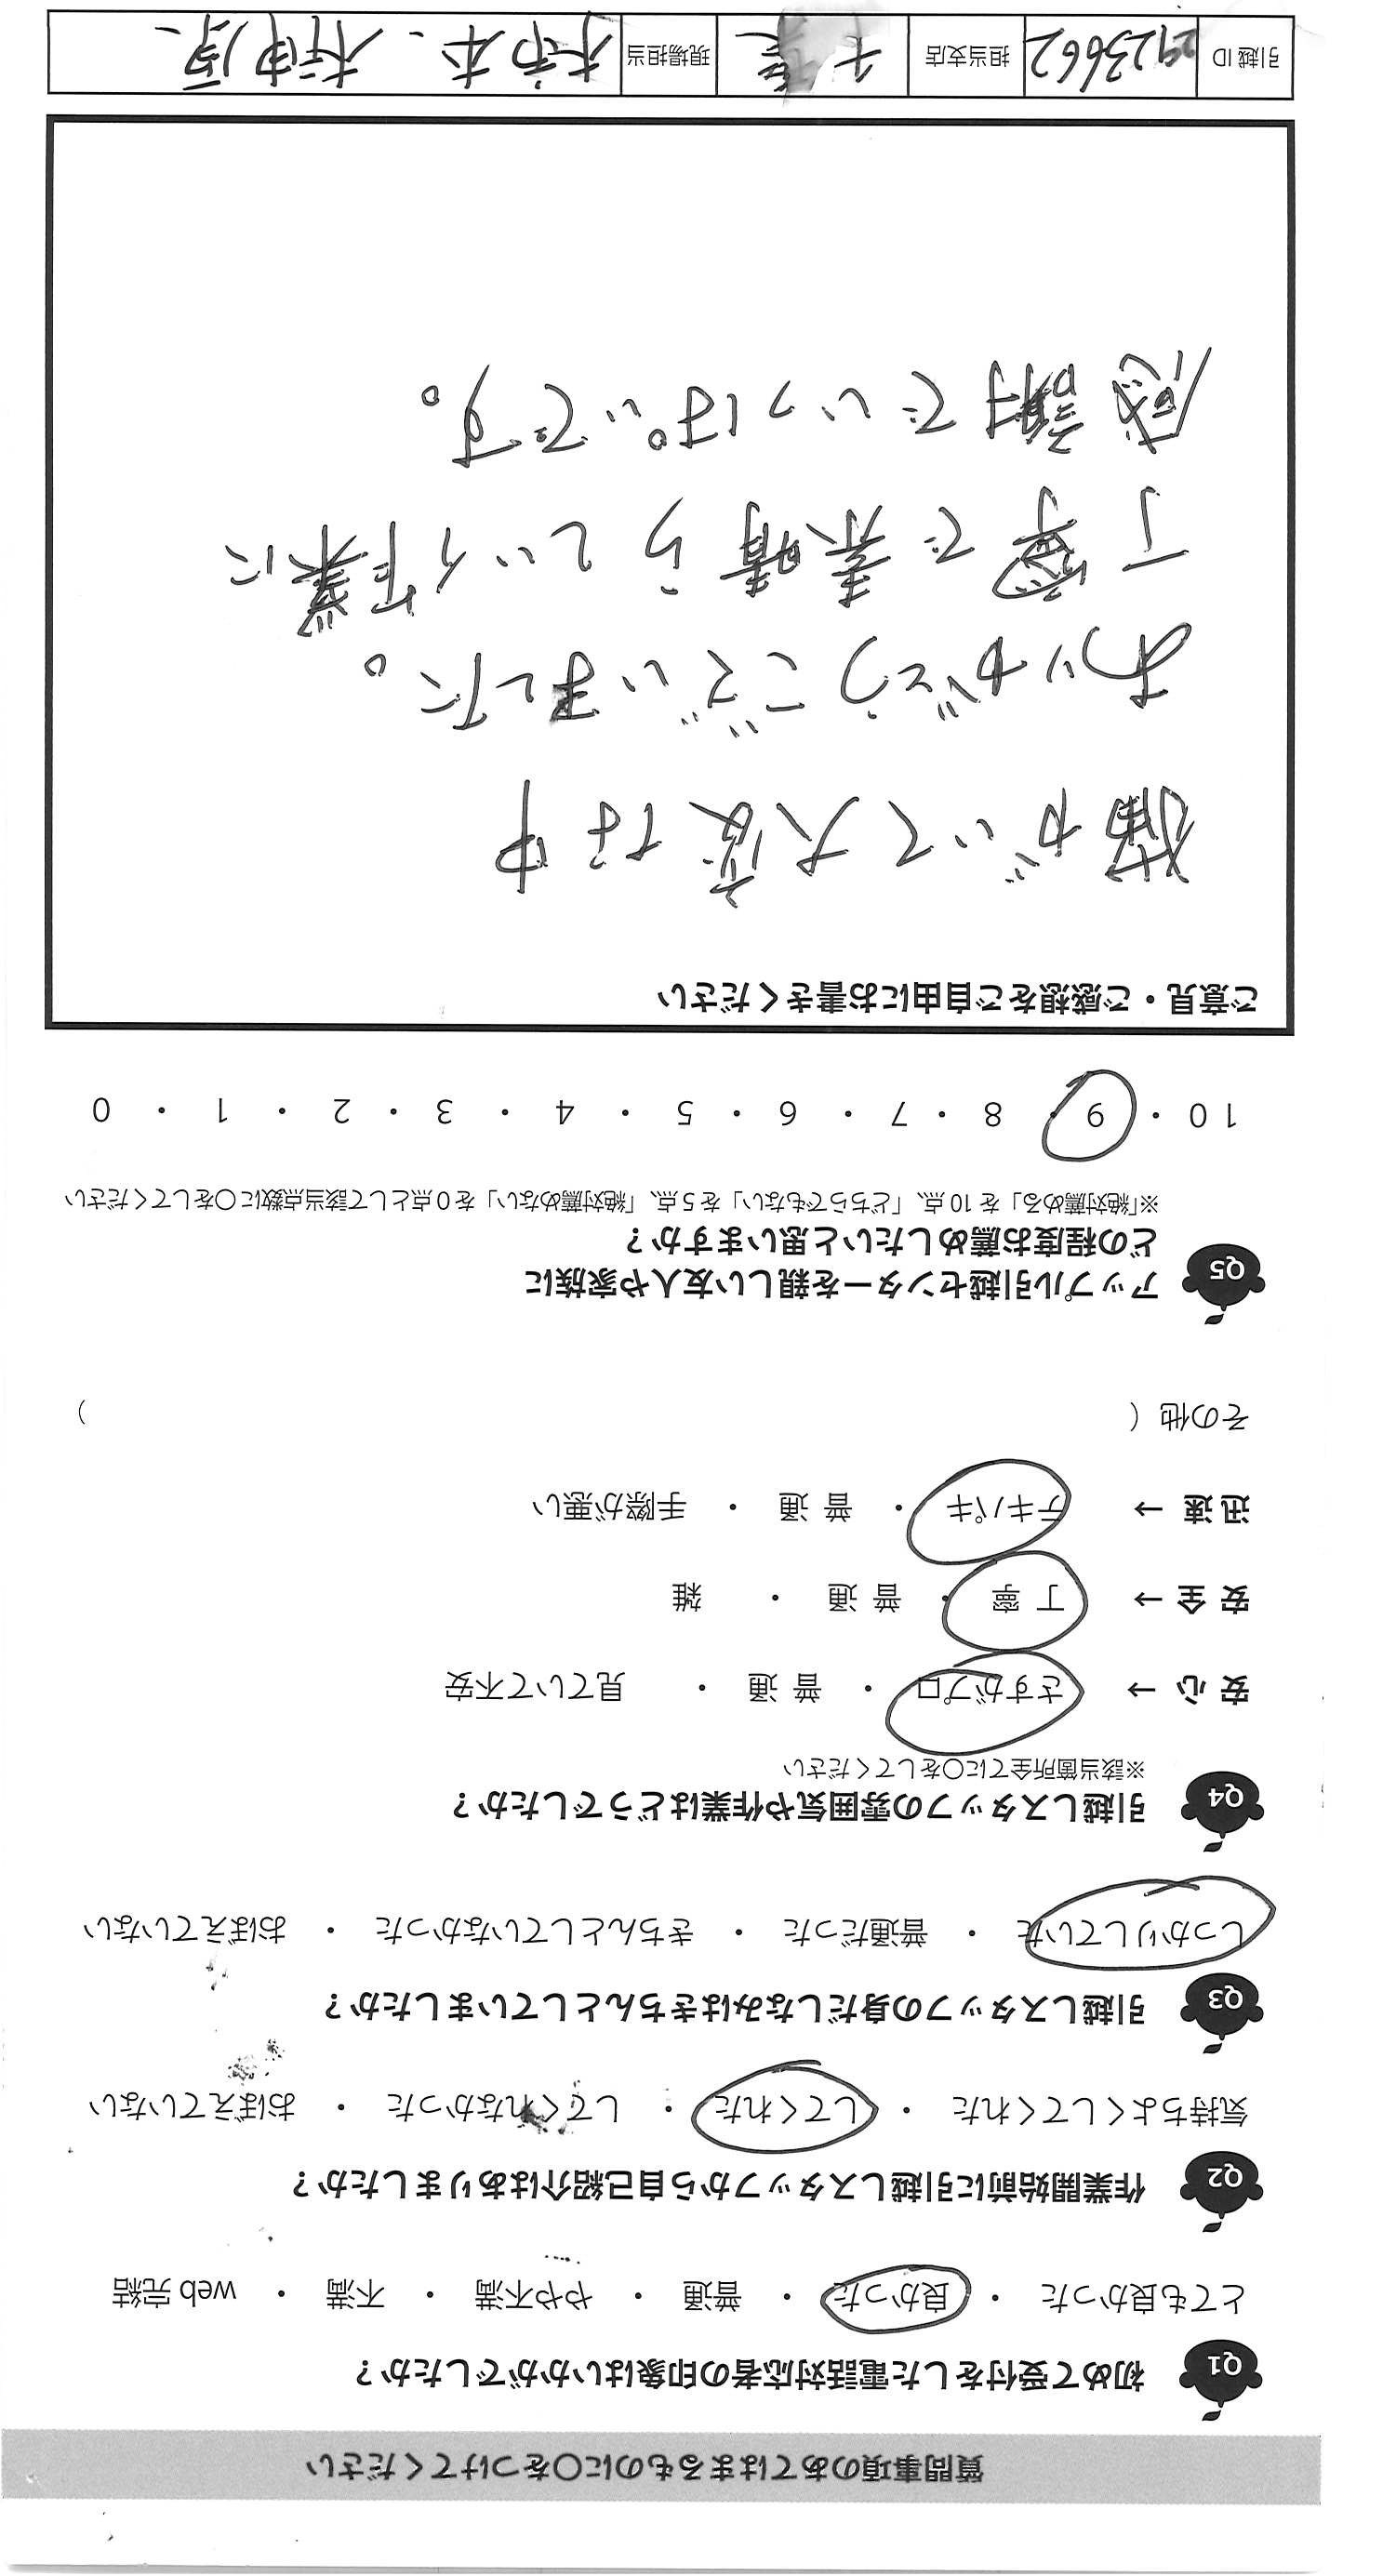 質問事項のあてはまるものに〇をつけてください
Q1 初めて受付をした電話対応者の印象はいかがでしたか？
とても良かった ・ 良かった ・ 普通 ・ やや不満 ・ 不満 ・ web 完結
Q2 作業開始前に引越しスタッフから自己紹介はありましたか？
気持ちよくしてくれた ・ してくれた ・ してくれなかった ・ おぼえていない
Q3 引越しスタッフの身だしなみはきちんとしていましたか？
しっかりしていた ・ 普通だった ・ きちんとしていなかった ・ おぼえていない
Q4 引越しスタッフの雰囲気や作業はどうでしたか？
※該当箇所全てに〇をしてください
安 心 → さすがプロ ・ 普 通 ・ 見ていて不安
安 全 → 丁 寧 ・ 普 通 ・ 雑
迅 速 → テキパキ ・ 普 通 ・ 手際が悪い
その他 ( )
Q5 アップル引越センターを親しい友人や家族に
どの程度お薦めしたいと思いますか？
※「絶対薦める」を 10 点、「どちらでもない」を 5 点、「絶対薦めない」を 0 点として該当点数に〇をしてください
10 ・ 9 ・ 8 ・ 7 ・ 6 ・ 5 ・ 4 ・ 3 ・ 2 ・ 1 ・ 0
ご意見・ご感想をご自由にお書きください
猫がいて大変な中
ありがとうございました。
丁寧で素晴らしい作業に
感謝でいっぱいです。
引越 ID 2923662 担当支店 千葉 現場担当 柿本、榊原、